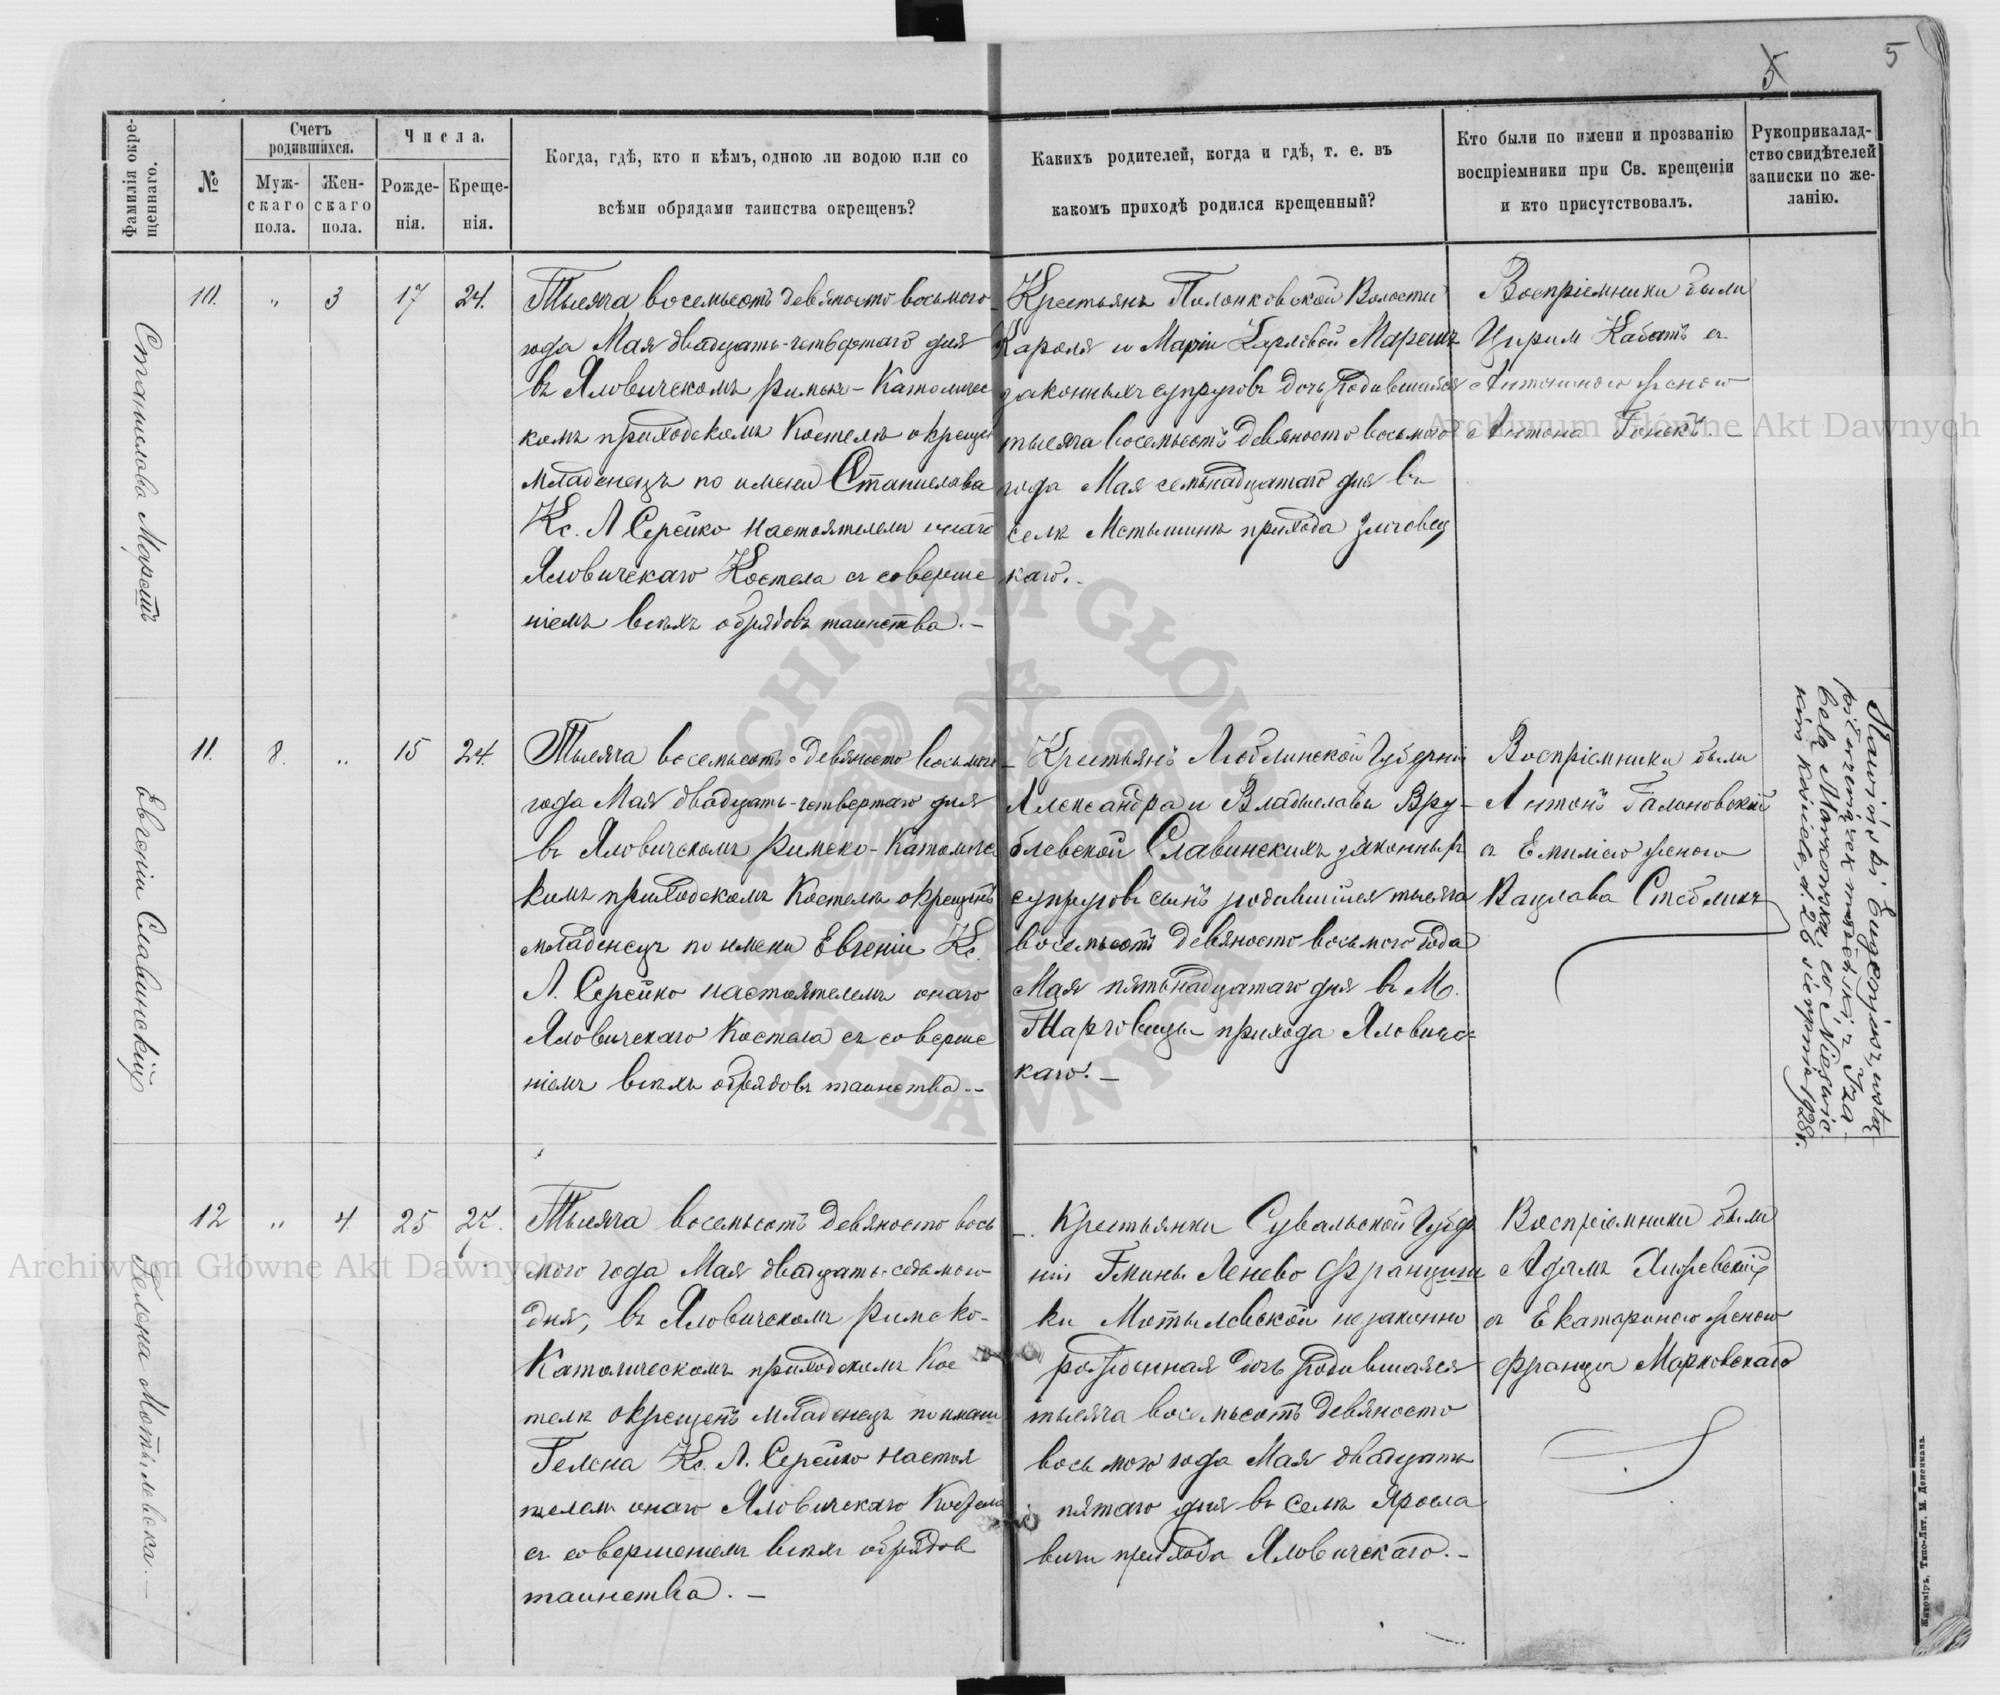 5
5
Фамилія окре-
щеннаго.
№
Счетъ
родившихся.
Муж-
скаго
пола.
Жен-
скаго
пола.
Числа.
Рожде-
нія.
Креще-
нія.
Когда, гдѣ, кто и кѣмъ, одною ли водою или со
всѣми обрядами таинства окрещенъ?
Какихъ родителей, когда и гдѣ, т. е. въ
какомъ приходѣ родился крещенный?
Кто были по имени и прозванію
воспріемники при Св. крещеніи
и кто присутствовалъ.
Рукоприкалад-
ство свидѣтелей
записки по же-
ланію.
Станислава Марешъ
10. " 3 17 24.
Тысяча восемьсотъ девяносто восьмого
года Мая двадцать-четвертаго дня
въ Яловичскомъ Римско-Католичес
комъ приходскомъ Костелѣ окрещен
младенецъ по имени Станислава
Кс. Л Серейко Настоятелемъ онаго
Яловичскаго Костела съ соверше
ніемъ всѣхъ обрядовъ таинства.-
Крестьянъ Полонковской Волости
Кароля и Маріи Марешъ
законныхъ супруговъ дочь родившаяся
тысяча восемьсотъ девяносто восьмого
года Мая семьнадцатаго дня въ
селѣ Мстышинѣ прихода
каго.-
Воспріемники были
Кабатъ съ
Антониною женою
Антона
Евгеній Славинскій
11. 8. " 15 24.
Тысяча восемьсотъ девяносто восьмого
года Мая двадцать-четвертаго дня
въ Яловичскомъ Римско-Католичес
комъ приходскомъ Костелѣ окрещенъ
младенецъ по имени Евгеній Кс.
Л. Серейко настоятелемъ онаго
Яловичскаго Костела съ соверше
ніемъ всѣхъ обрядовъ таинства.-
Крестьянъ Люблинской Губерніи
Александра и Владиславы Вру-
блевской Славинскихъ законныхъ
супруговъ сынъ родившійся тысяча
восемьсотъ девяносто восьмого года
Мая пятьнадцатаго дня въ М.
Торговицы прихода Яловичс-
каго.-
Воспріемники были
Антонъ Галоновскій
съ Емиліею женою
Вацлава
Sławiński Eugenjusz, wstą-
pił w związek małżeński z Iza-
belą w Nieświc-
kim kościele, d. 26 sierpnia 1928 r.
Гелена Мотылевска.-
12 " 4. 25 27.
Тысяча восемьсотъ девяносто вось
мого года Мая двадцать-седьмого
дня, въ Яловичскомъ Римско-
Католическомъ приходскомъ Кос
телѣ окрещенъ младенецъ по имени
Гелена Кс. Л. Серейко Настоя
телемъ онаго Яловичскаго Костела
съ совершеніемъ всѣхъ обрядовъ
таинства.-
Крестьянки Сувальской Губер
ніи Гмины Ленево Франциш
ки Мотылевской незаконно
рожденная дочь родившаяся
тысяча восемьсотъ девяносто
восьмого года Мая двадцать
пятаго дня въ Селѣ Яросла
вичи прихода Яловичскаго.-
Воспріемники были
Адамъ
съ Екатериною женою
Франца Марковскаго
Archiwum Główne Akt Dawnych
Archiwum Główne Akt Dawnych
ARCHIWUM GŁÓWNE
AKT DAWNYCH
Житоміръ, Типо-Лит. М. Дененмана.